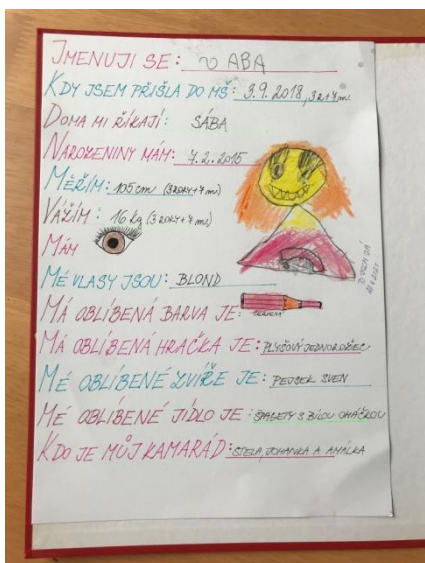 JMENUJI SE: ABA
KDY JSEM PŘIŠLA DO MŠ: 3.9.2018, 3r+7m
DOMA MI ŘÍKAJÍ: SÁBA
NAROZENINY MÁM: 7.2.2015
MĚŘÍM: 105cm (3ROKY+7m)
VÁŽÍM: 16kg (3ROKY+7m)
MÁM
MÉ VLASY JSOU: BLOND
MÁ OBLÍBENÁ BARVA JE:
MÁ OBLÍBENÁ HRAČKA JE: PLYŠOVÝ JEDNOROŽEC
MÉ OBLÍBENÉ ZVÍŘE JE: PEJSEK SVEN
MÉ OBLÍBENÉ JÍDLO JE: ŠPAGETY S BÍLOU OMÁČKOU
KDO JE MŮJ KAMARÁD: STELA, JOHANKA A AMÁLKA